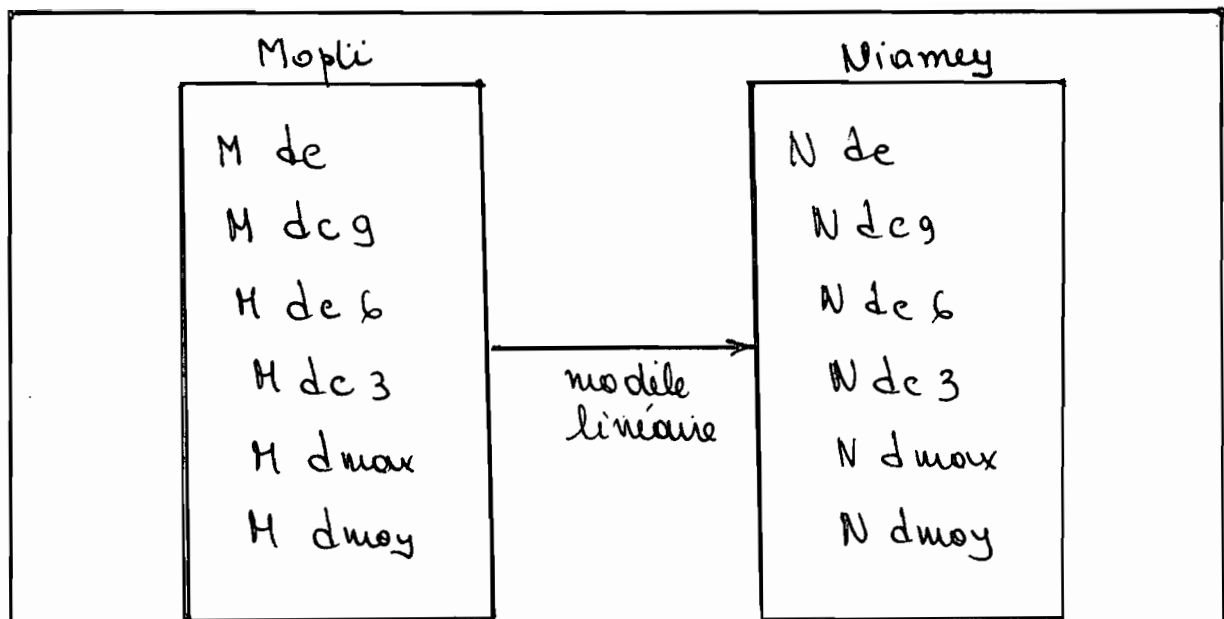 Mopti
M de
M dc 9
M de 6
M dc 3
M dmax
M dmoy
modèle
linéaire
Niamey
N de
N dc 9
N de 6
N dc 3
N dmax
N dmoy